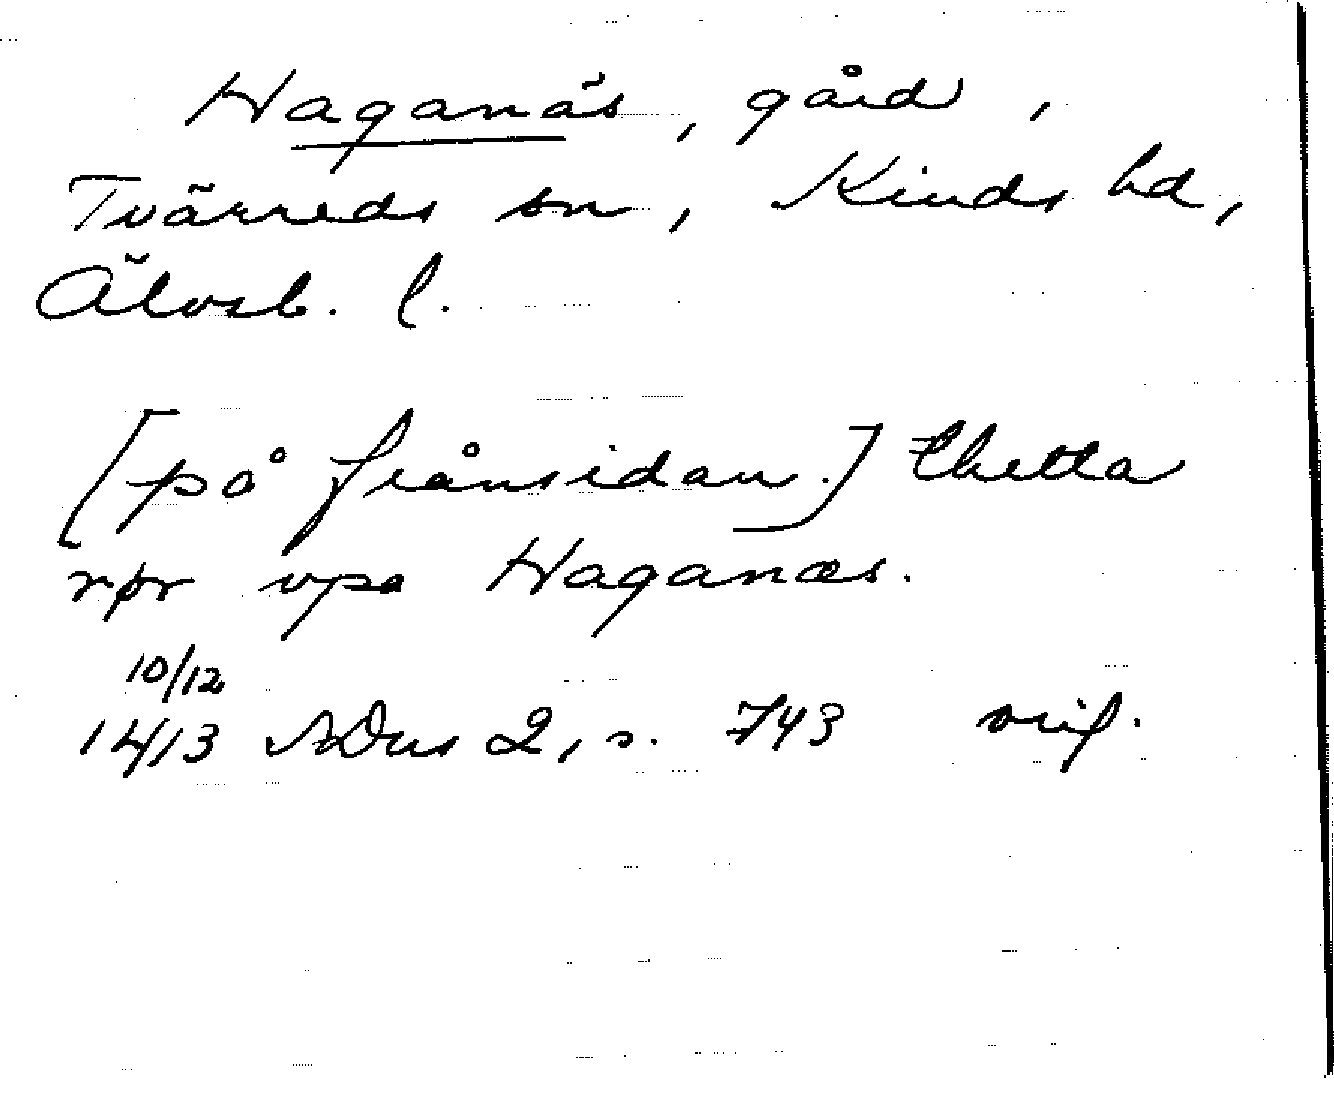 Haganäs, gård,
Tvärreds sn, Kinds hd,
Älvsb. l.
[på frånsidan.] thetta
rør vpa Haganæs.
10/12
1413 SDns 2, s. 743 orig.